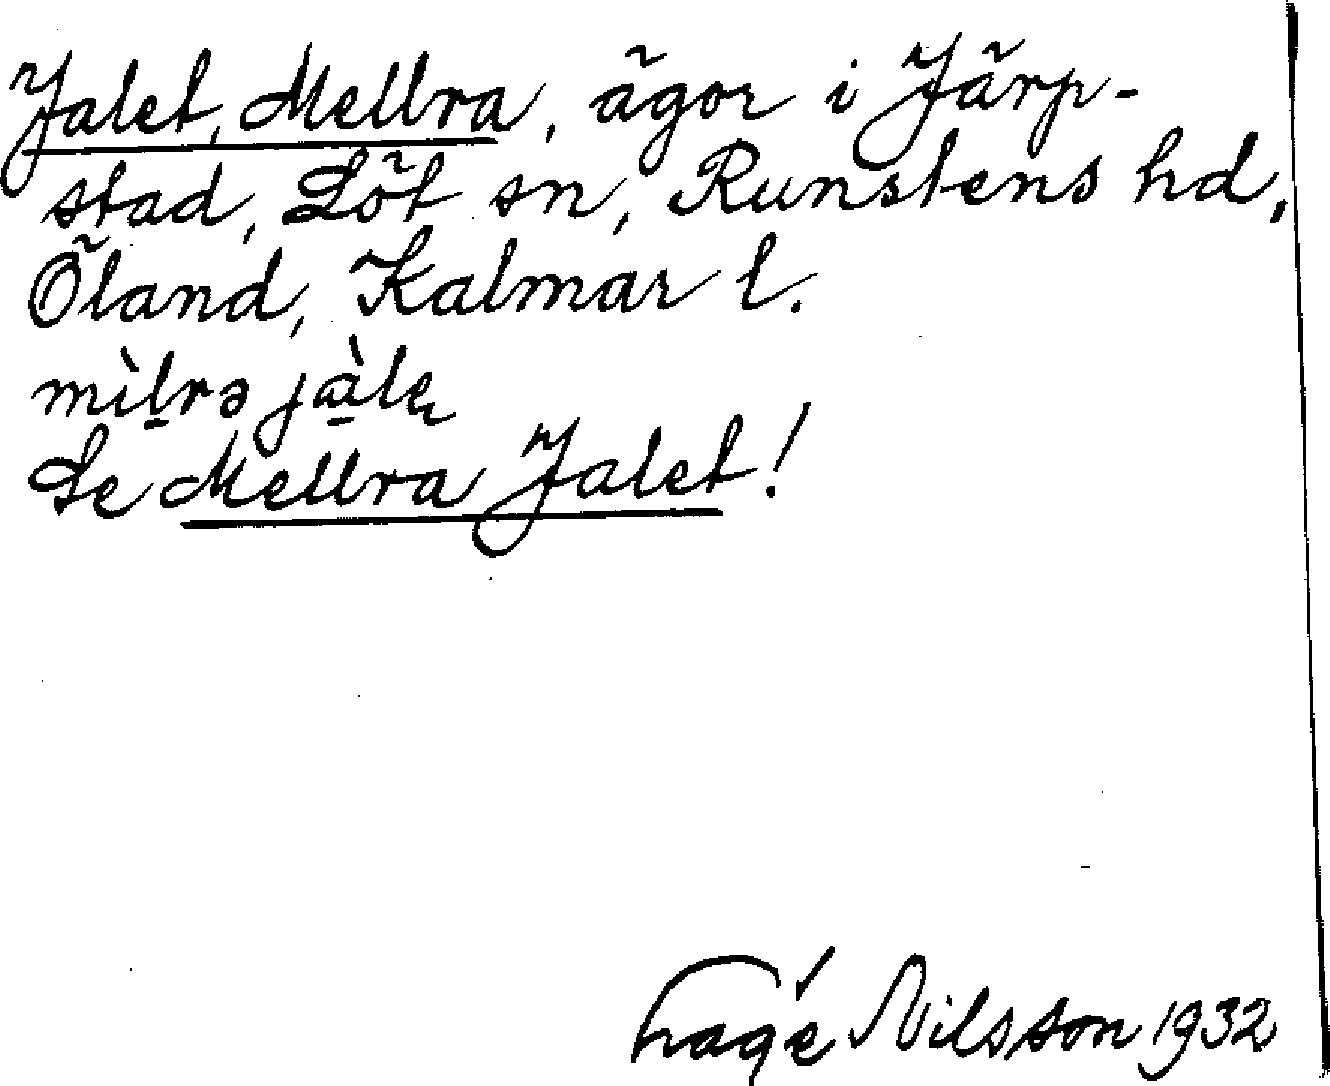 Jalet, Mellra, ägor i Järp-
stad, Löt sn, Runstens hd,
Öland, Kalmar l.
mìl̠rə jà̠le
Se Mellra Jalet!
Nilsson 1932